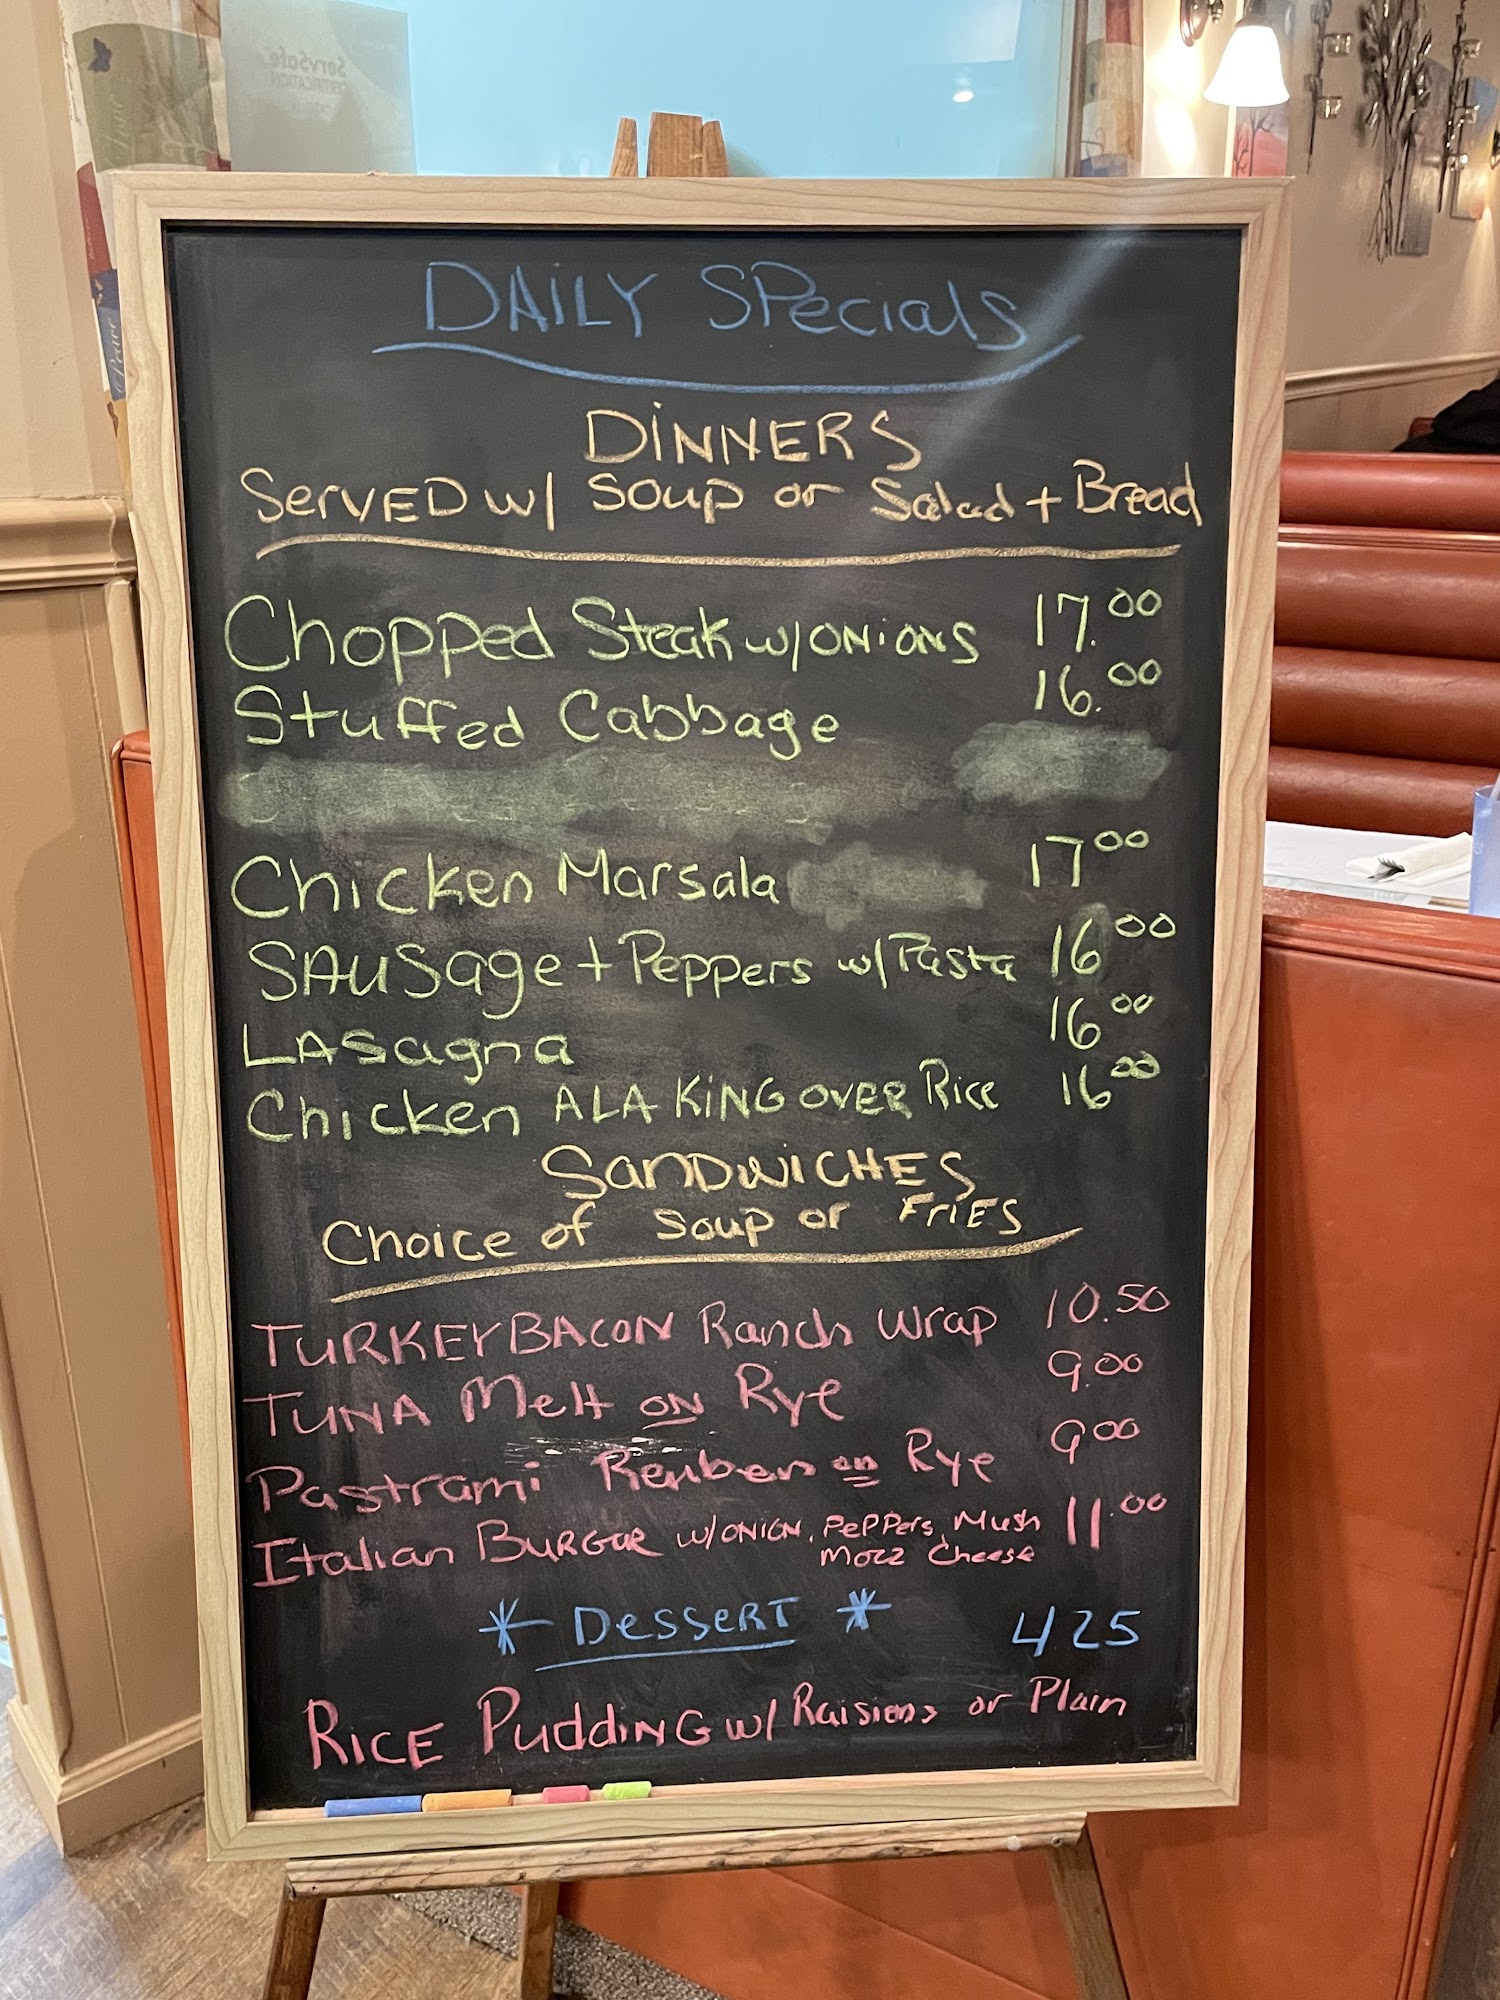 ServSafe
CERTIFICATION
DAiLY SPecials
DiNNERS
SERVED w/ Soup or Salad + Bread
Chopped Steak w/ONiONS 17.00
Stuffed Cabbage 16.00
Chicken Marsala 17 00
SAuSage + Peppers w/ Pasta 16 00
LASagna 16 00
Chicken ALA KiNG OVER Rice 16 00
SANDWiCHES
Choice of Soup or FriES
TURKEY BACON Ranch Wrap 10.50
TUNA Melt ON Rye 9.00
Pastrami Reuben on Rye 9 00
Italian BURGER w/ONION, PePPers, Mush 11.00
Mozz Cheese
* DesseRT * 4 25
RiCE PuddiNG w/ Raisiens or Plain